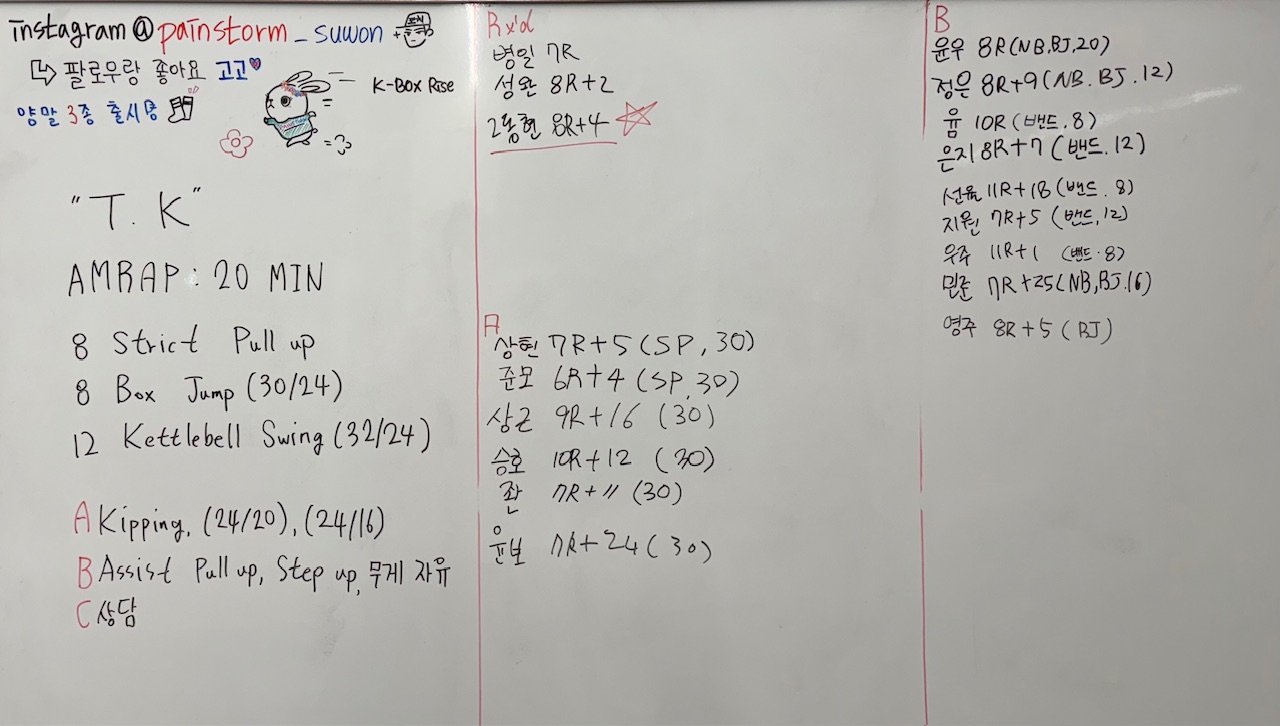 instagram @ painstorm _ suwon
팔로우랑 좋아요 고고
양말 3종 출시중
K-Box Rise
"T. K"
AMRAP: 20 MIN
8 Strict Pull up
8 Box Jump (30/24)
12 Kettlebell Swing (32/24)
A Kipping, (24/20), (24/16)
B Assist Pull up, Step up, 무게 자유
C 상담
Rx'd
병일 7R
성완 8R+2
2동현 8R+4
A
상현 7R+5 (SP, 30)
준모 6R+4 (SP, 30)
상근 9R+16 (30)
승호 10R+12 (30)
좐 7R+11 (30)
윤보 7R+24 (30)
B
윤우 8R (NB, BJ, 20)
정은 8R+9 (NB. BJ. 12)
윰 10R (밴드. 8)
은지 8R+7 (밴드. 12)
선율 11R+18 (밴드. 8)
지원 7R+5 (밴드, 12)
우주 11R+1 (밴드. 8)
민준 7R+25 (NB, BJ. 16)
영주 8R+5 (BJ)